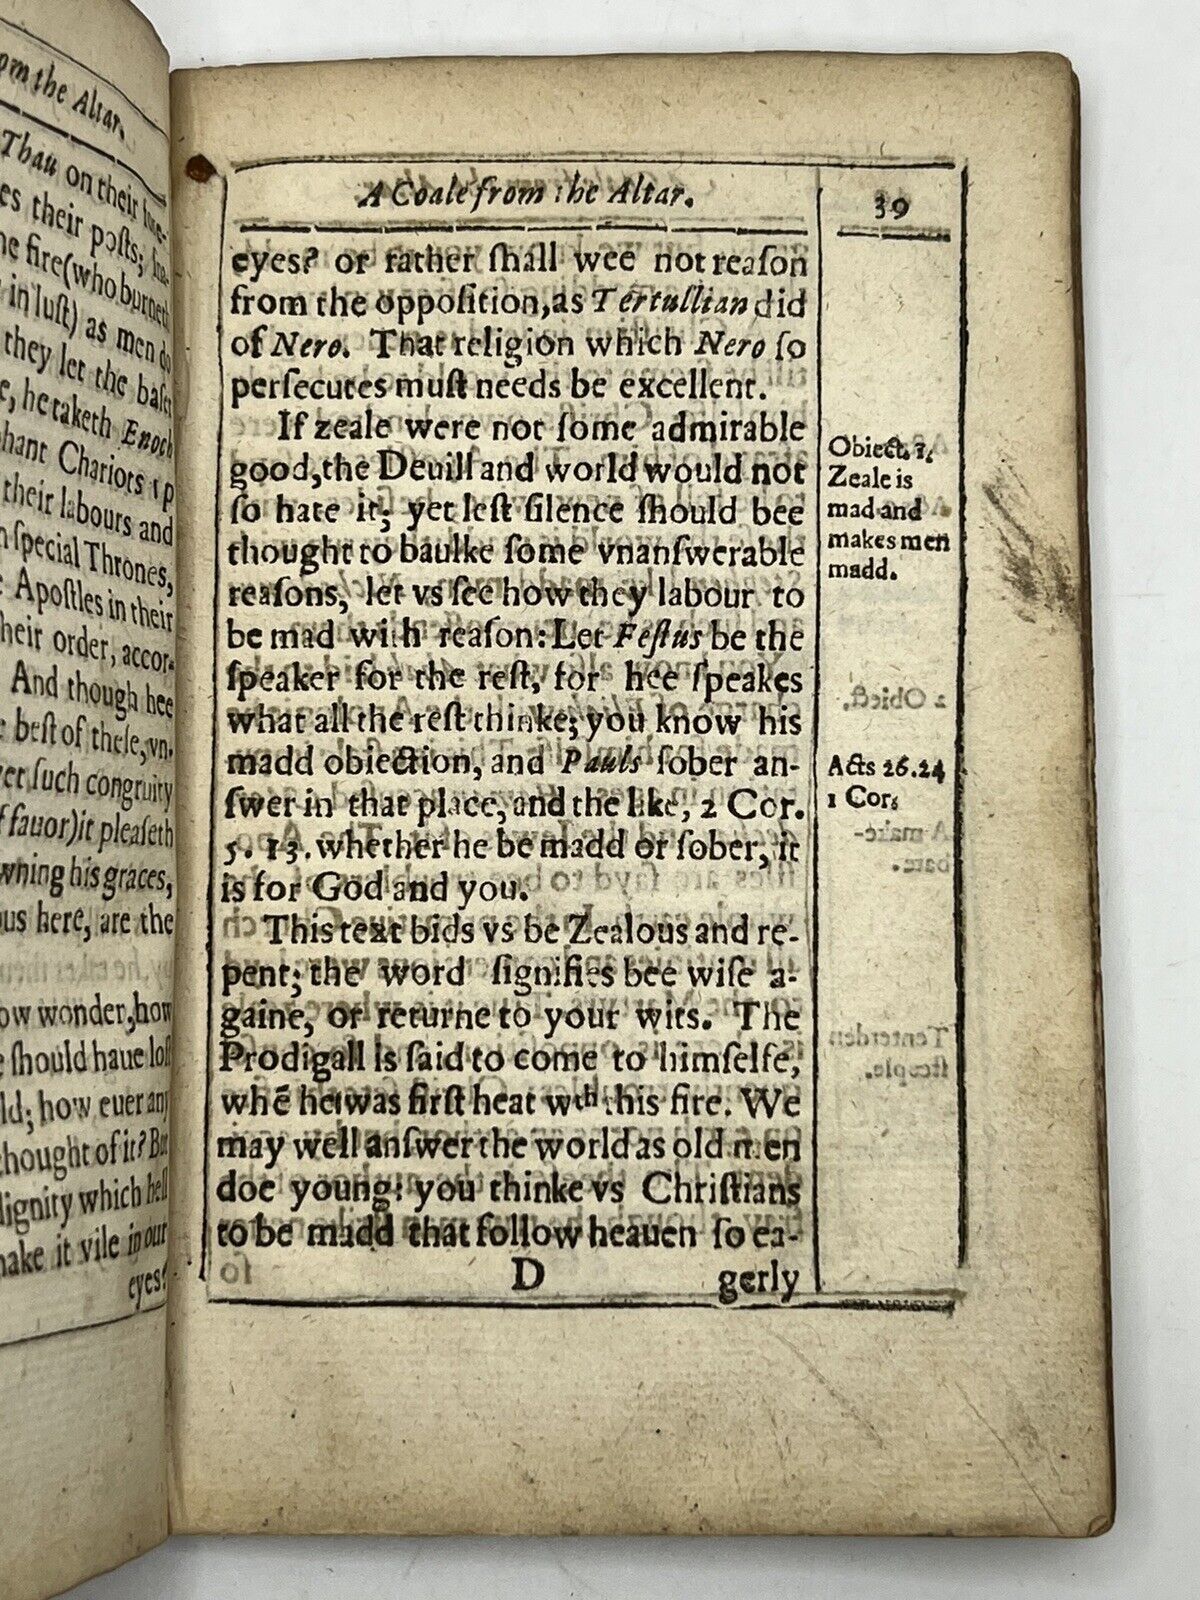 om the Altar.
Thau on their
es their posts;
he fire (who burneth
in lust) as men do
they let the baser
e, he taketh Enoch
phant Chariots up
their labours and
n special Thrones,
Apostles in their
heir order, accor-
And though hee
best of these, vn-
yet such congruity
f fauor) it pleaseth
wning his graces,
us here, are the
ow wonder, how
e should haue lost
ld; how euer any
thought of it? But
dignity which hell
make it vile in our
eyes?
A Coale from the Altar. 39
eyes? or rather ſhall wee not reaſon
from the oppoſition, as Tertullian did
of Nero. That religion which Nero ſo
perſecutes muſt needs be excellent.
If zeale were not ſome admirable
good, the Deuill and world would not
ſo hate it; yet leſt ſilence ſhould bee
thought to baulke ſome vnanſwerable
reaſons, let vs ſee how they labour to
be mad with reaſon: Let Feſtus be the
ſpeaker for the reſt, for hee ſpeakes
what all the reſt thinke; you know his
madd obiection, and Pauls ſober an-
ſwer in that place, and the like, 2 Cor.
5. 13. whether he be madd or ſober, it
is for God and you.
This text bids vs be Zealous and re-
pent; the word ſignifies bee wiſe a-
gaine, or returne to your wits. The
Prodigall is ſaid to come to himſelfe,
whē he was firſt heat wth this fire. We
may well anſwer the world as old men
doe young: you thinke vs Chriſtians
to be madd that follow heauen ſo ea-
D gerly
Obiect. 1.
Zeale is
mad and
makes men
madd.
Acts 26.24
1 Cor.